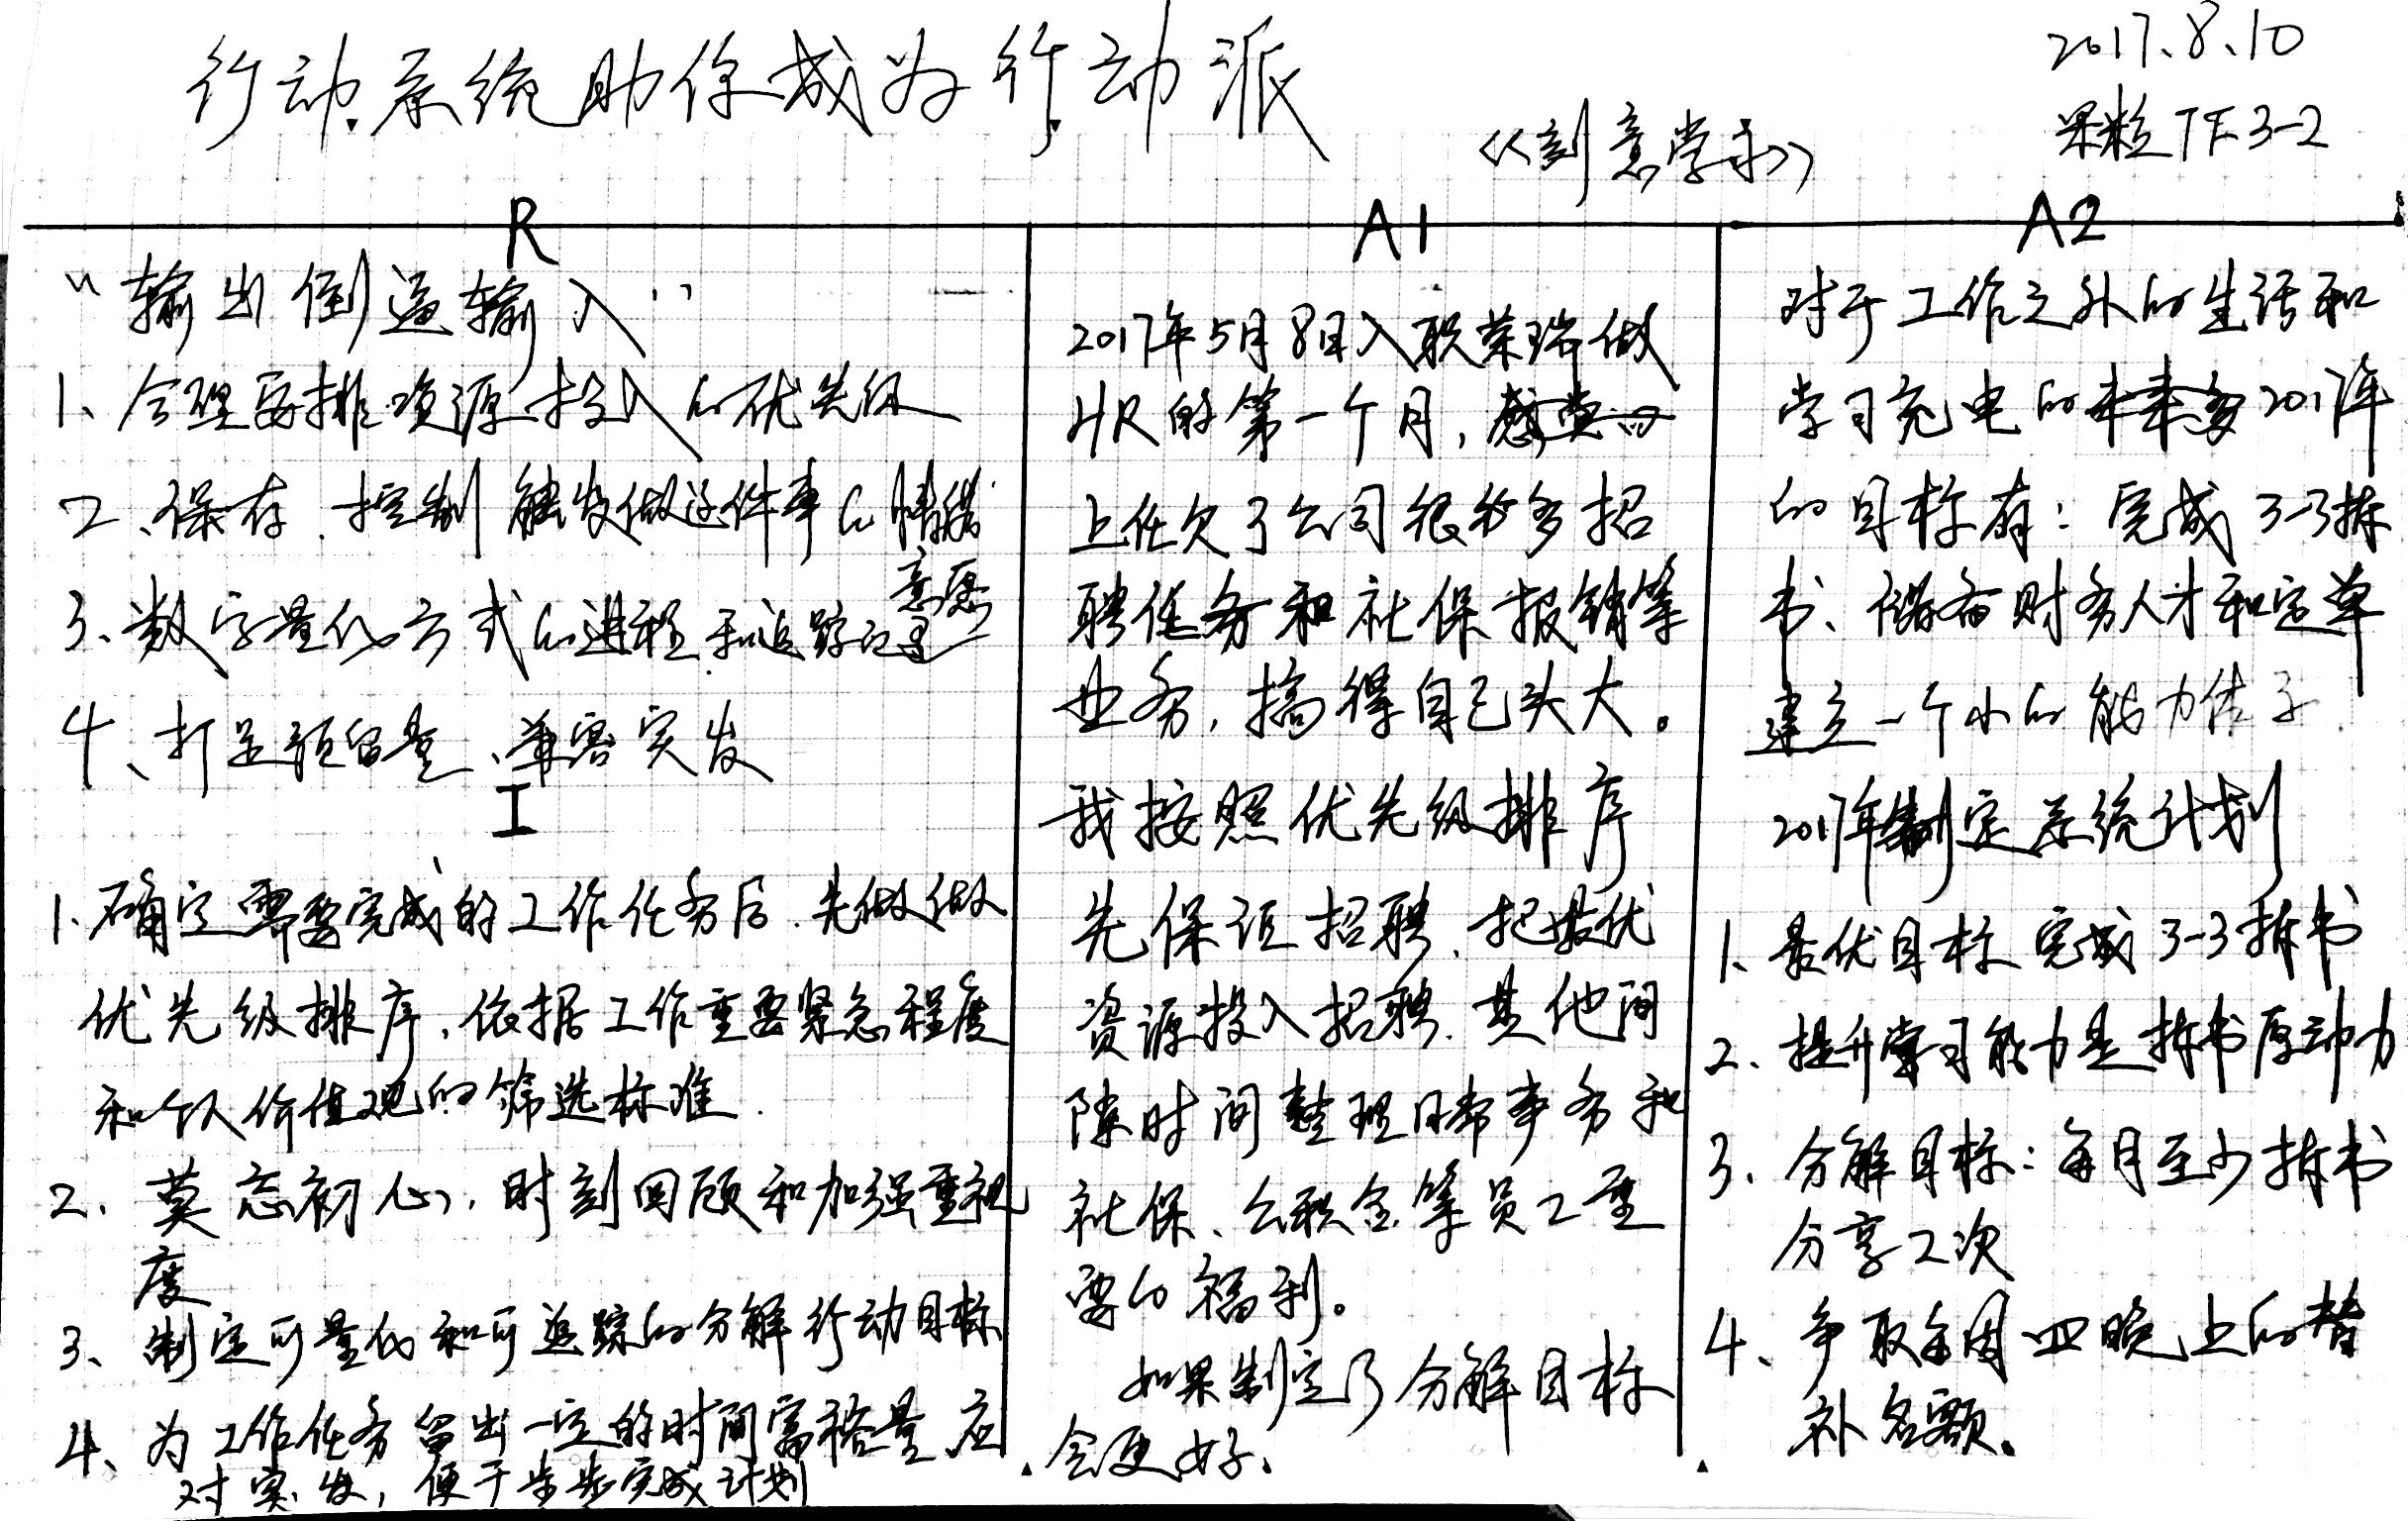 行动系统助你成为行动派
2017.8.10
果粒 TF 3-2
《刻意学习》
R
“输出倒逼输入”
1、合理安排资源投入的优先级
2、保存、控制触发做这件事的情绪
意愿
3、数字量化方式的进程和追踪记录
4、打足预留量、兼容突发
I
1.确定需要完成的工作任务后.先做做
优先级排序,依据工作重要紧急程度
和个人价值观的筛选标准.
2.莫忘初心,时刻回顾和加强重视
度
3、制定可量化和可追踪的分解行动目标
4、为工作任务留出一定的时间富裕量应
对突发,便于步步完成计划
A1
2017年5月8日入职荣瑞做
HR的第一个月,
上任欠了公司很多招
聘任务和社保报销等
业务,搞得自己头大。
我按照优先级排序
先保证招聘.把最优
资源投入招聘.其他间
隙时间整理日常事务和
社保、公积金等员工重
要的福利。
如果制定了分解目标
会更好、
A2
对于工作之外的生活和
学习充电的 2017年
的目标有:完成3-3拆
书、储备财务人才和定单
建立一个小的能力
2017年制定系统计划
1、最优目标 完成3-3拆书
2、提升学习能力是拆书原动力
3.分解目标:每月至少拆书
分享2次
4、争取每周四晚上的替
补名额。